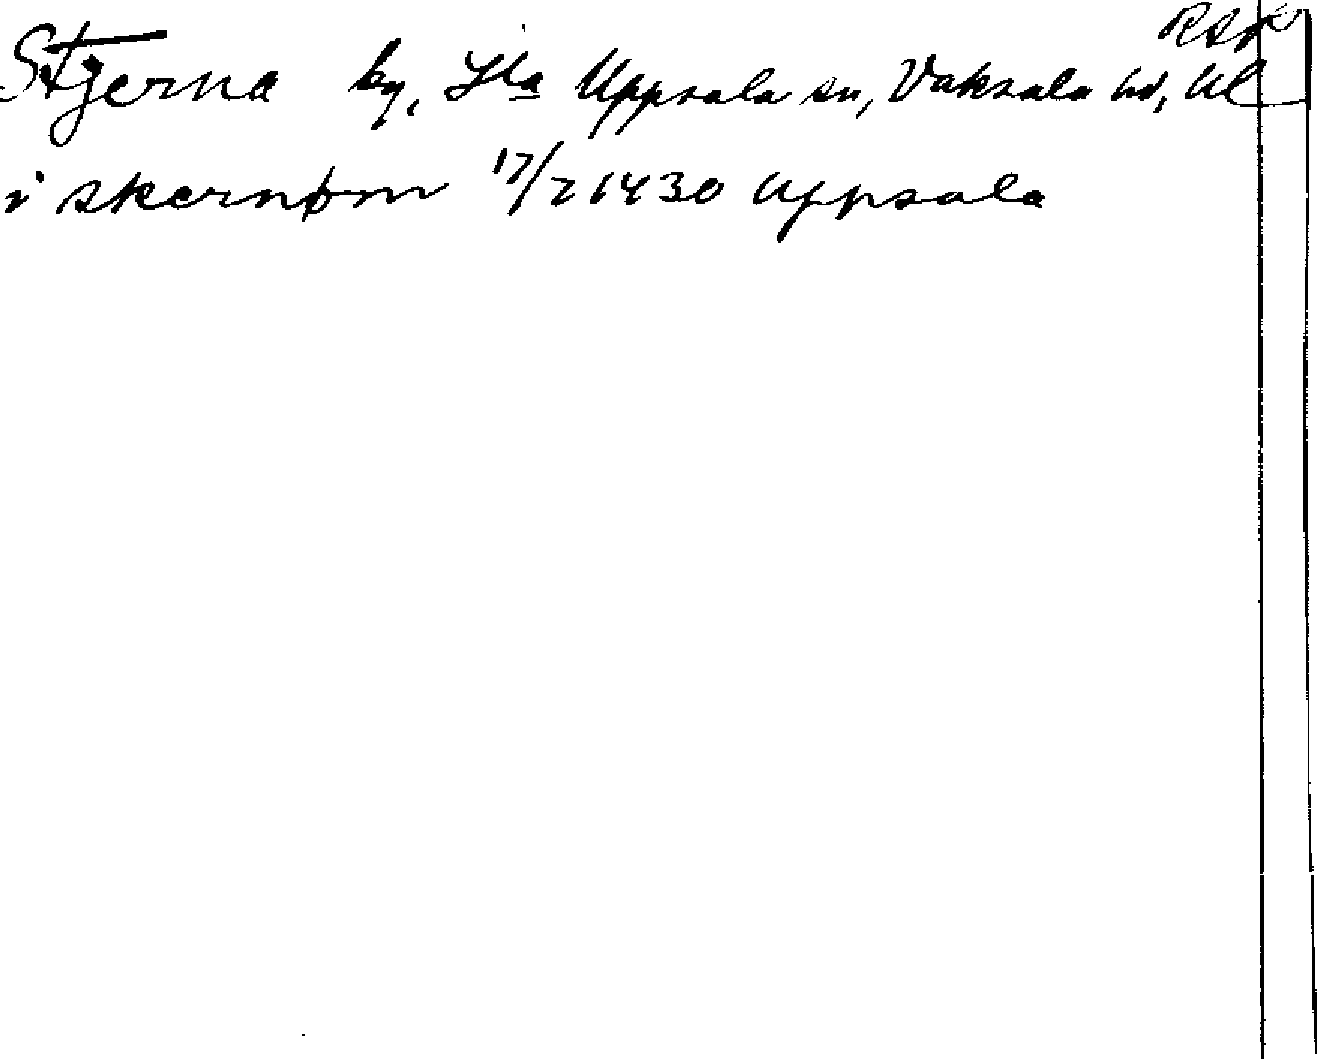 RAp
Stjerna by, Gla Uppsala sn, Vaksala hd, Ul
i skernþm 17/7 1430 Uppsala